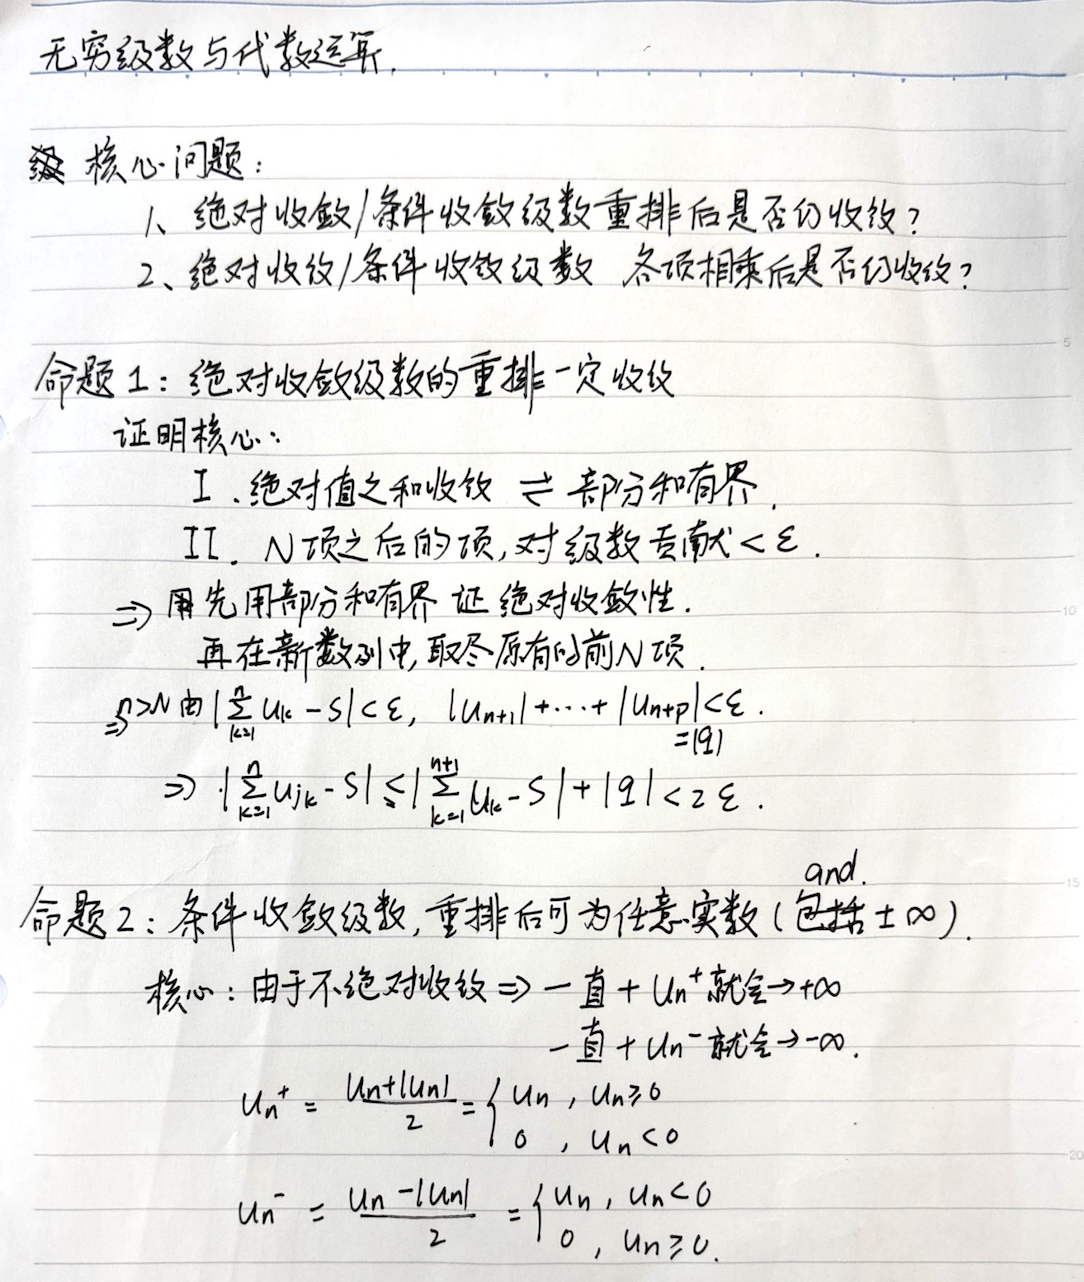 无穷级数与代数运算.
核心问题:
1、绝对收敛/条件收敛级数重排后是否仍收敛?
2、绝对收敛/条件收敛级数 各项相乘后是否仍收敛?
5
命题1: 绝对收敛级数的重排一定收敛
证明核心:
I. 绝对值之和收敛 ⇌ 部分和有界.
II. N项之后的项, 对级数贡献<ε.
⇒ 先用部分和有界 证 绝对收敛性.
10
再在新数列中, 取尽原有的前N项.
⇒ n>N 由 |∑_{k=1}^{n} u_k - S| < ε, |u_{n+1}| + ⋯ + |u_{n+p}| < ε.
= |q|
⇒ |∑_{k=1}^{n} u_{j_k} - S| ≤ |∑_{k=1}^{n+1} u_k - S| + |q| < 2ε.
and.
15
命题2: 条件收敛级数, 重排后可为任意实数 (包括 ±∞).
核心: 由于不绝对收敛 ⇒ 一直 + u_n^+ 就会→+∞
一直 + u_n^- 就会→-∞.
u_n^+ = (u_n+|u_n|)/2 = { u_n , u_n ≥ 0
0 , u_n < 0
20
u_n^- = (u_n - |u_n|)/2 = { u_n , u_n < 0
0 , u_n ≥ 0.